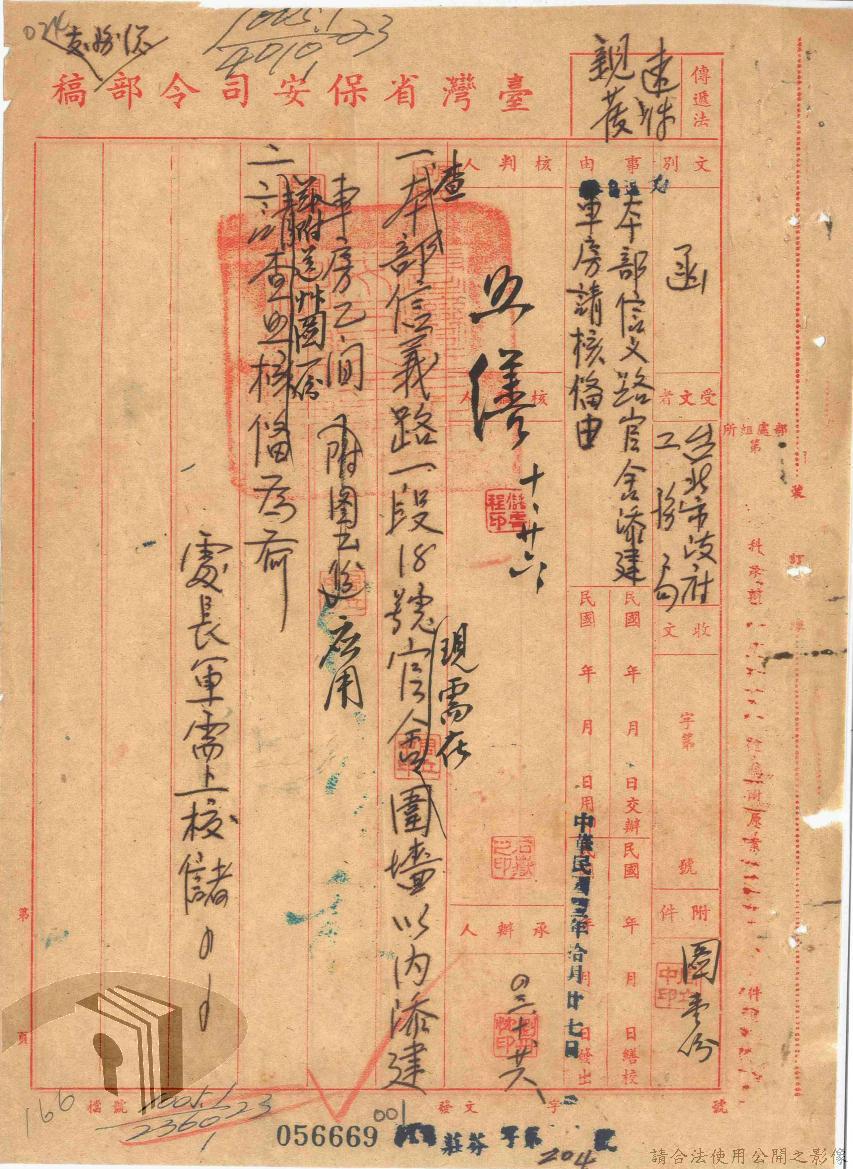 臺灣省保安司令部稿
傳遞法
速件
親發
文別
函
事由
本部信义路官舍添建
車房請核俻由
受文者
台北市政府
工務局
收文
字第
號
附件
圖壹份
民國 年 月 日交辦
民國 年 月 日繕校
核判人
核稿人
十、廿六、
承辦人
中華民國
年拾月廿七日
查
一本部信義路一段18號官舍圍墻以內添建
現需在
車房乙間
應用
茲附送草圖一份
二請查照核俻為荷
處長軍需上校儲
第
頁
檔號
1005.1
4010
23
1005.1
2360
23
1
166
056669
001
發文
字
號
204
部處組所
第
請合法使用公開之影像